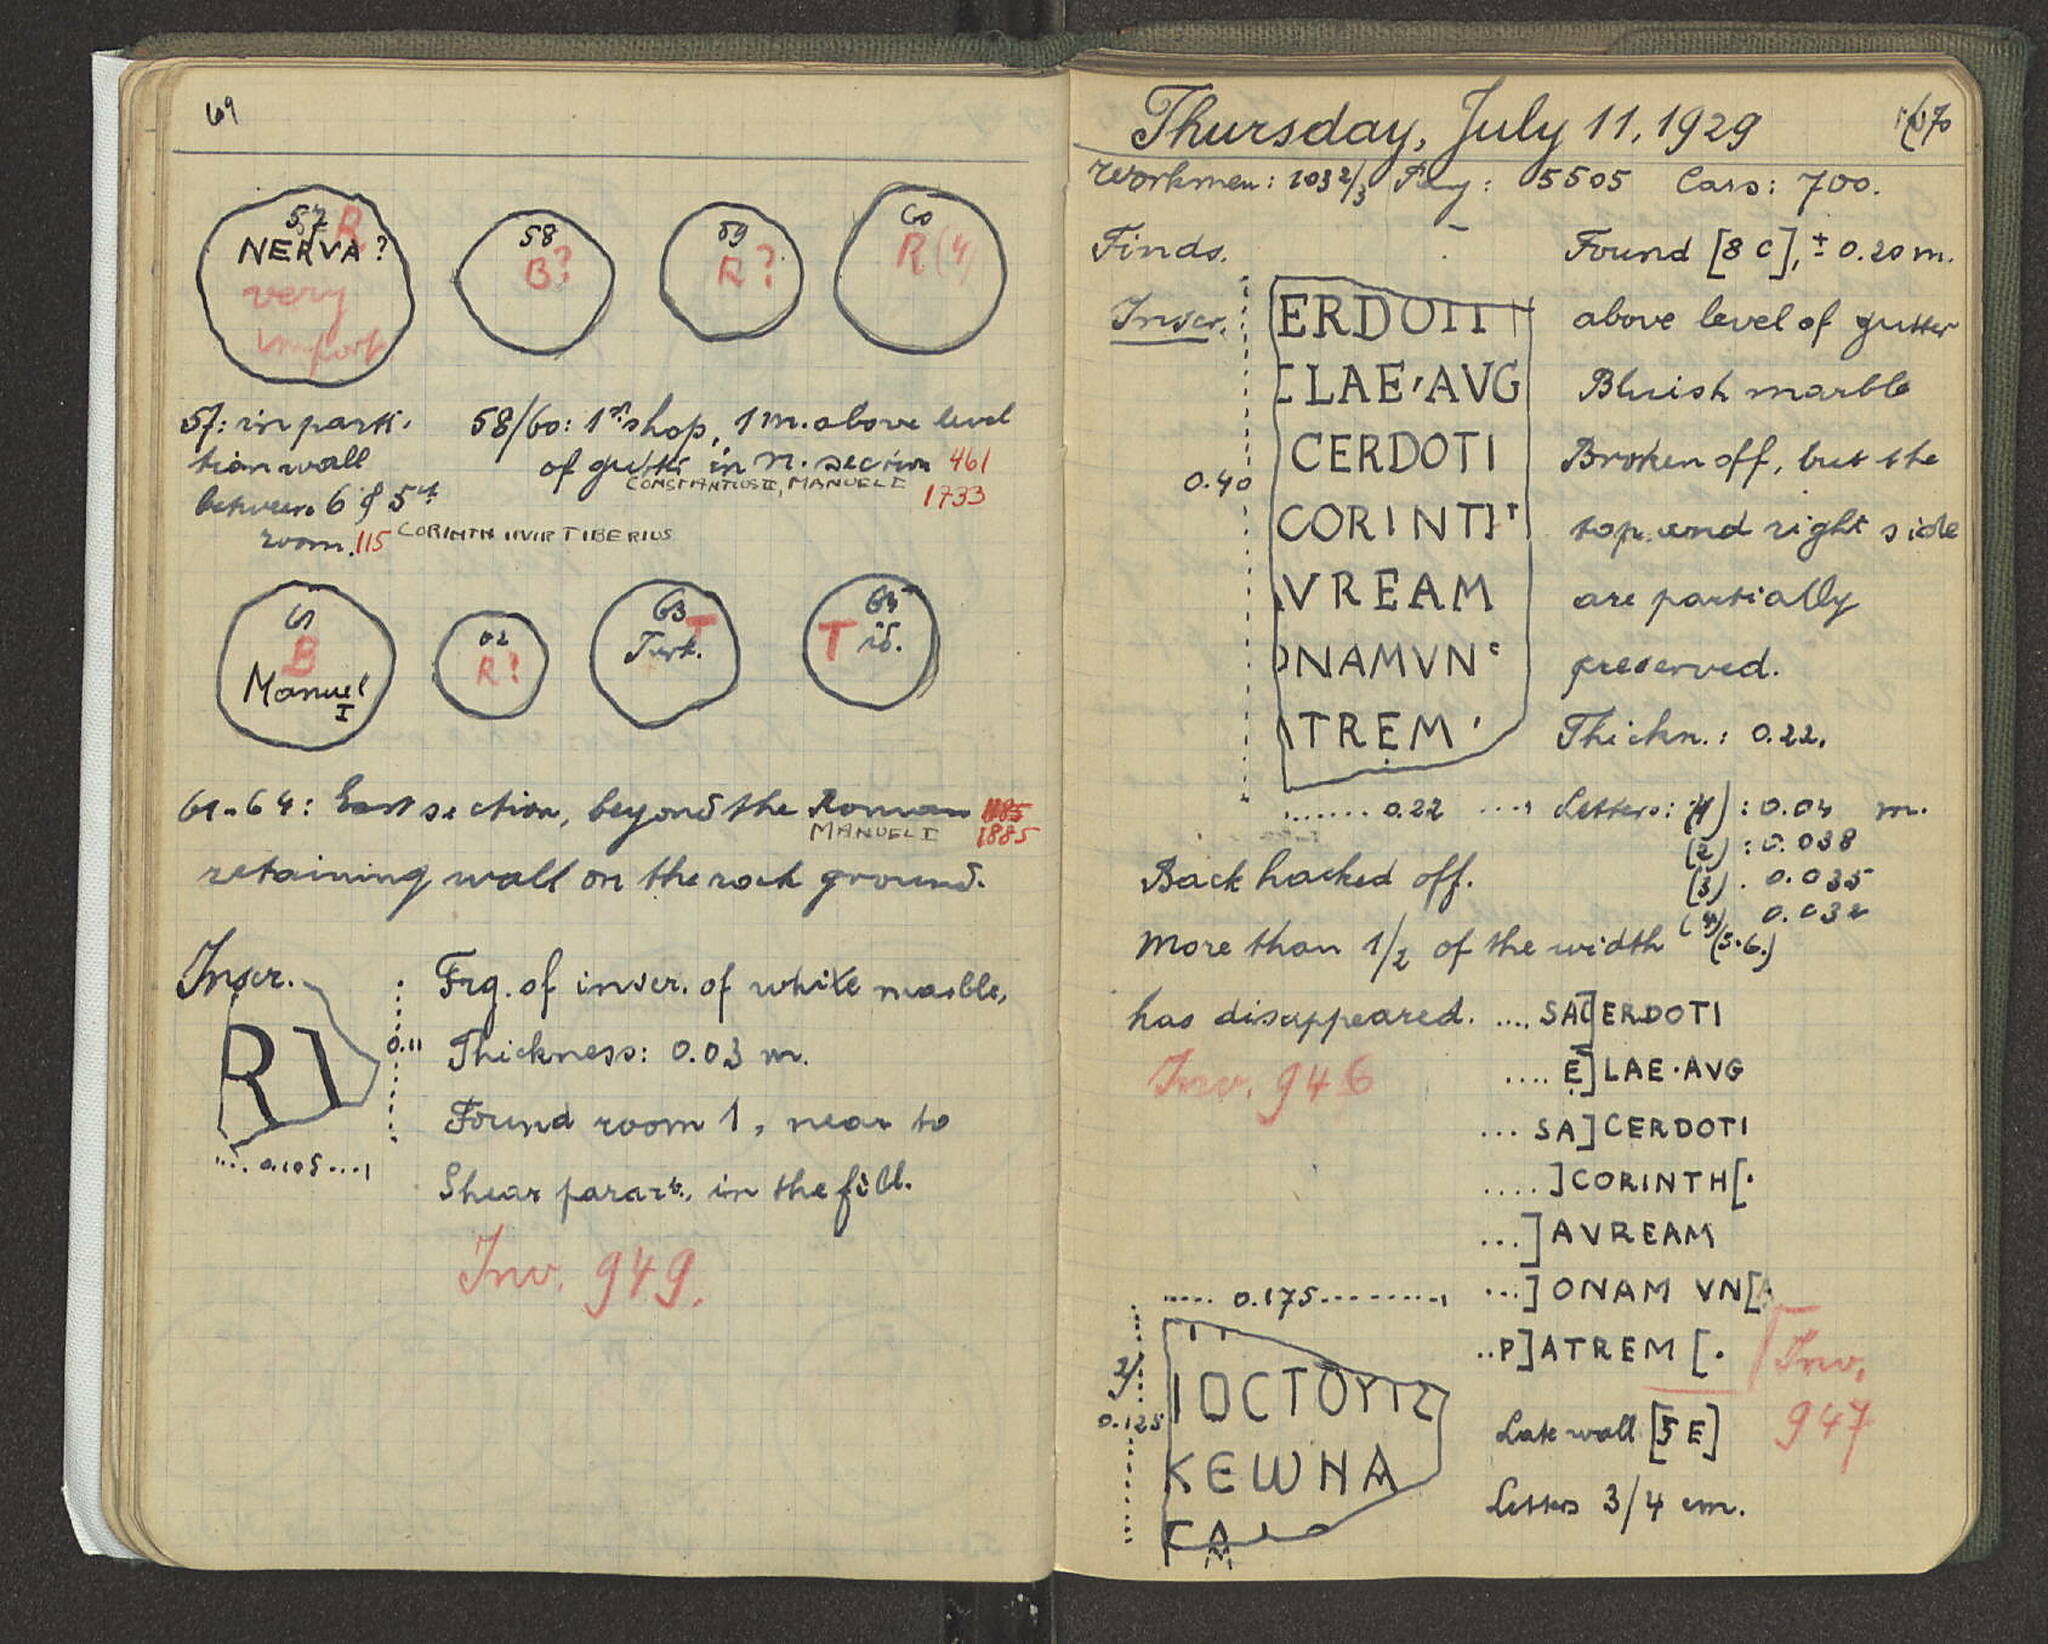 69
57 R
NERVA?
very
import.
58
B?
59
R?
60
R (4)
57: in parti-
tion wall
between 6 & 5th
room. 115 CORINTH IIVIR TIBERIUS
58/60: 1st shop, 1 m. above level
of gutter in N. section 461
CONSTANTIUS II, MANUEL I 1733
61
B
Manuel
I
62
R?
63
T
Turk.
64
T id.
61-64: East section, beyond the Roman 1185
MANUEL I 1885
retaining wall on the rock ground.
Inscr.
RI
0.11
0.105
Frg. of inscr. of white marble,
Thickness: 0.03 m.
Found room 1, near to
Shear parart., in the fill.
Inv. 949.
Thursday, July 11, 1929
70
Workmen: 103 2/3 Pay: 5505 Cars: 700.
Finds.
Inscr.
0.40
ERDOTI
ELAE'AVG
CERDOTI
CORINTH
VREAM
ONAMVN
ATREM'
0.22
Found [8 C], ± 0.20 m.
above level of gutter
Bluish marble
Broken off, but the
top and right side
are partially
preserved.
Thickn.: 0.22.
Letters: (1): 0.04 m.
(2): 0.038
(3). 0.035
(4) 0.032
(5.6.)
Back hacked off.
More than 1/2 of the width
has disappeared.
Inv. 946
.... SAC]ERDOTI
.... E]LAE·AVG
... SA]CERDOTI
.... ]CORINTH[.
...]AVREAM
...]ONAM VN[A
..P]ATREM [.
0.175
2/
0.125
IOCTOYTI
KEWHA
Inv.
947
Late wall [5 E]
Letters 3/4 cm.